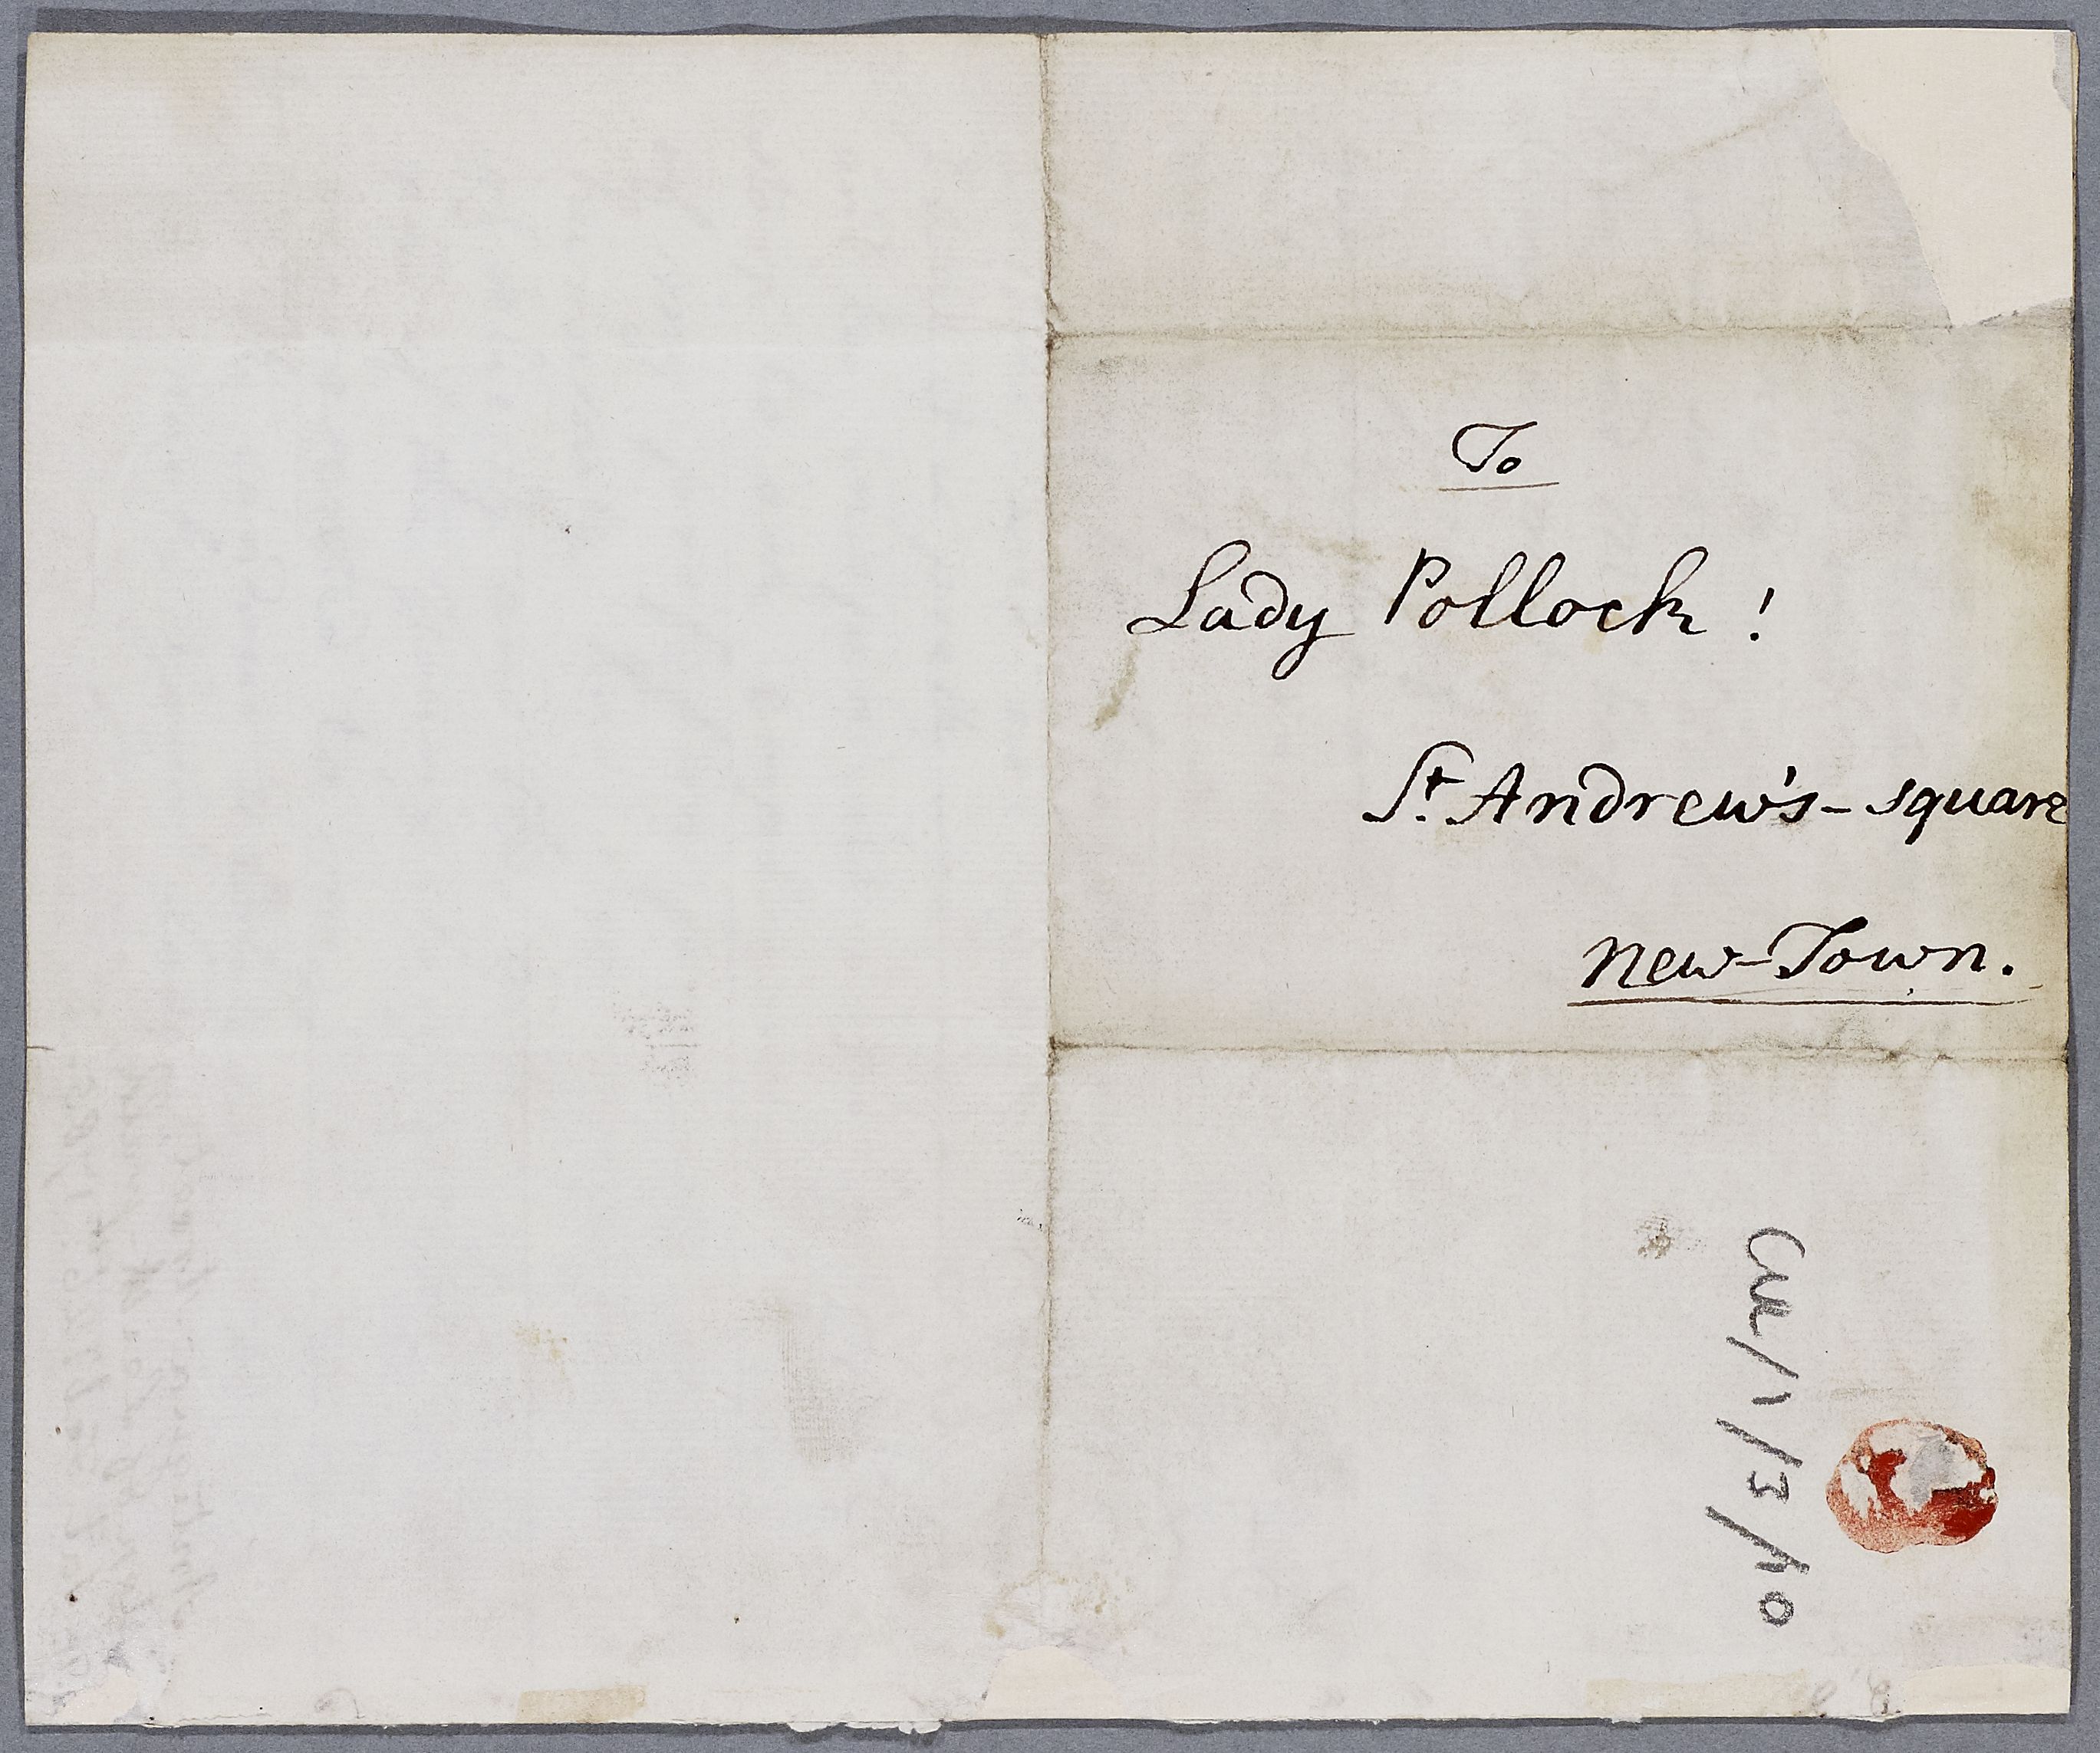 To
Lady Pollock!
St. Andrew's-square
New-Town.
Cu/1/3/40